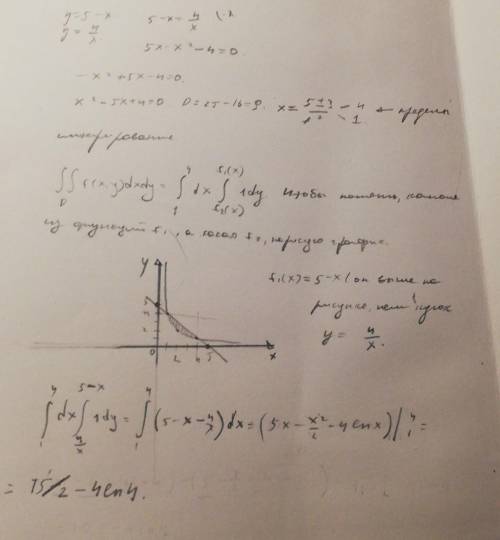 y=5-x    5-x=4/x  |·x
y=4/x
5x-x²-4=0.
-x²+5x-4=0.
x²-5x+4=0. D=25-16=9. x=(5±3)/2 - 4 1 ← пределы
∬_D f(x,y)dxdy = ∫_1^4 dx ∫_{f₂(x)}^{f₁(x)} 1dy чтобы понять, какая
из функций f₁, а какая f₂, нарисую график.
y
f₁(x)=5-x (он выше на
рисунке, чем
y = 4/x.
0 2 4 5 x
∫_1^4 dx ∫_{4/x}^{5-x} 1dy = ∫_1^4 (5-x-4/x)dx = (5x-x²/2-4lnx)|_1^4 =
= 15/2 - 4ln4.